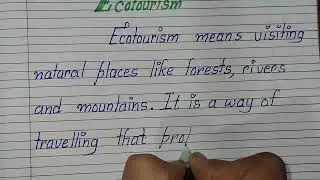 Ecotourism
Ecotourism means visiting
natural places like forests, rivers
and mountains. It is a way of
travelling that pro